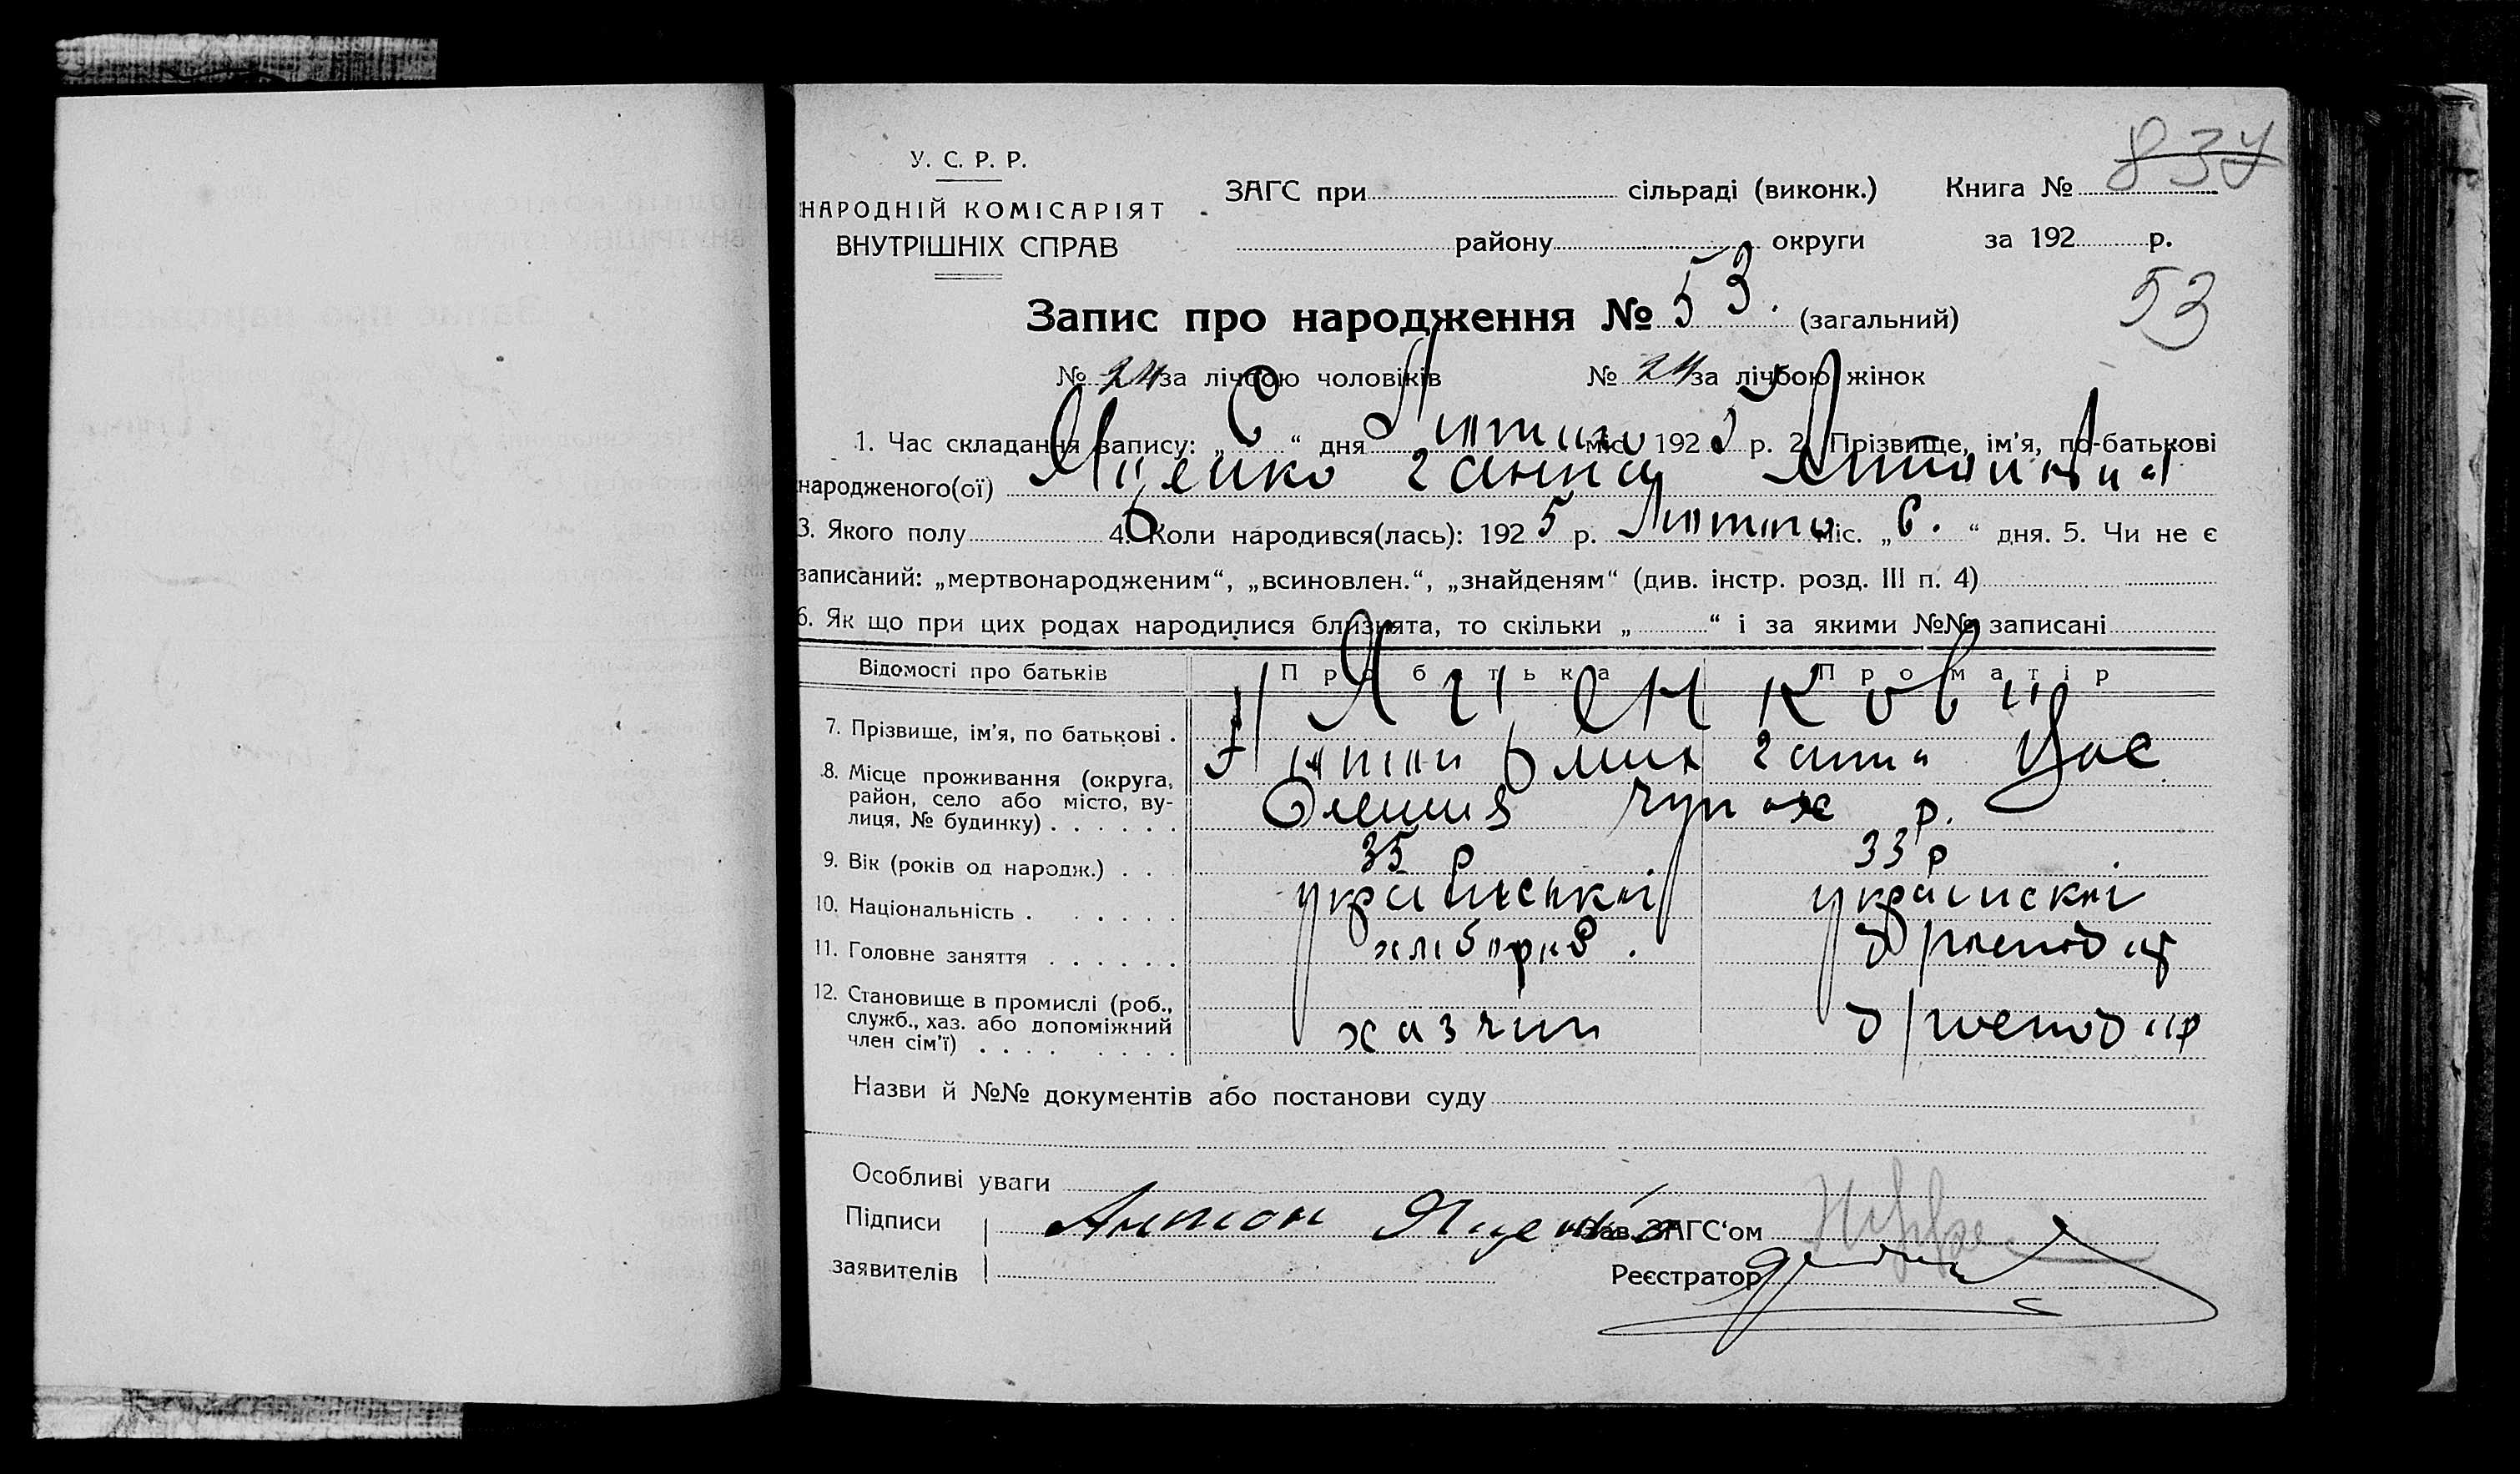 У. С. Р. Р.
НАРОДНІЙ КОМІСАРІЯТ
ВНУТРІШНІХ СПРАВ
ЗАГС при сільраді (виконк.) Книга № 837
району округи за 192 р.
53
Запис про народження № 53. (загальний)
№ 24 за лічбою чоловіків № 24 за лічбою жінок
1. Час складання запису: „ 6 “ дня Лютого міс. 192 5 р. 2. Прізвище, ім’я, по-батькові
народженого(ої) Яценко Ганна Антоновна
3. Якого полу 4. Коли народився(лась): 192 5 р. Лютого міс. „ 6. “ дня. 5. Чи не є
записаний: „мертвонародженим“, „всиновлен.“, „знайденям“ (див. інстр. розд. III п. 4)
6. Як що при цих родах народилися близнята, то скільки „ “ і за якими №№ записані
Відомості про батьків Про батька Про матір
7. Прізвище, ім’я, по батькові .
8. Місце проживання (округа, район, село або місто, вулиця, № будинку) . . . . . .
9. Вік (років од народж.) . . . 35 р 33 р
10. Національність . . . . . . української украинскої
11. Головне заняття . . . . . . хлібороб.
12. Становище в промислі (роб., служб., хаз. або допоміжний член сім’ї) . . . . . . . . хазяин
Назви й №№ документів або постанови суду
Особливі уваги
Підписи Антон Яценко Зав. ЗАГС‘ом
заявителів Реєстратор